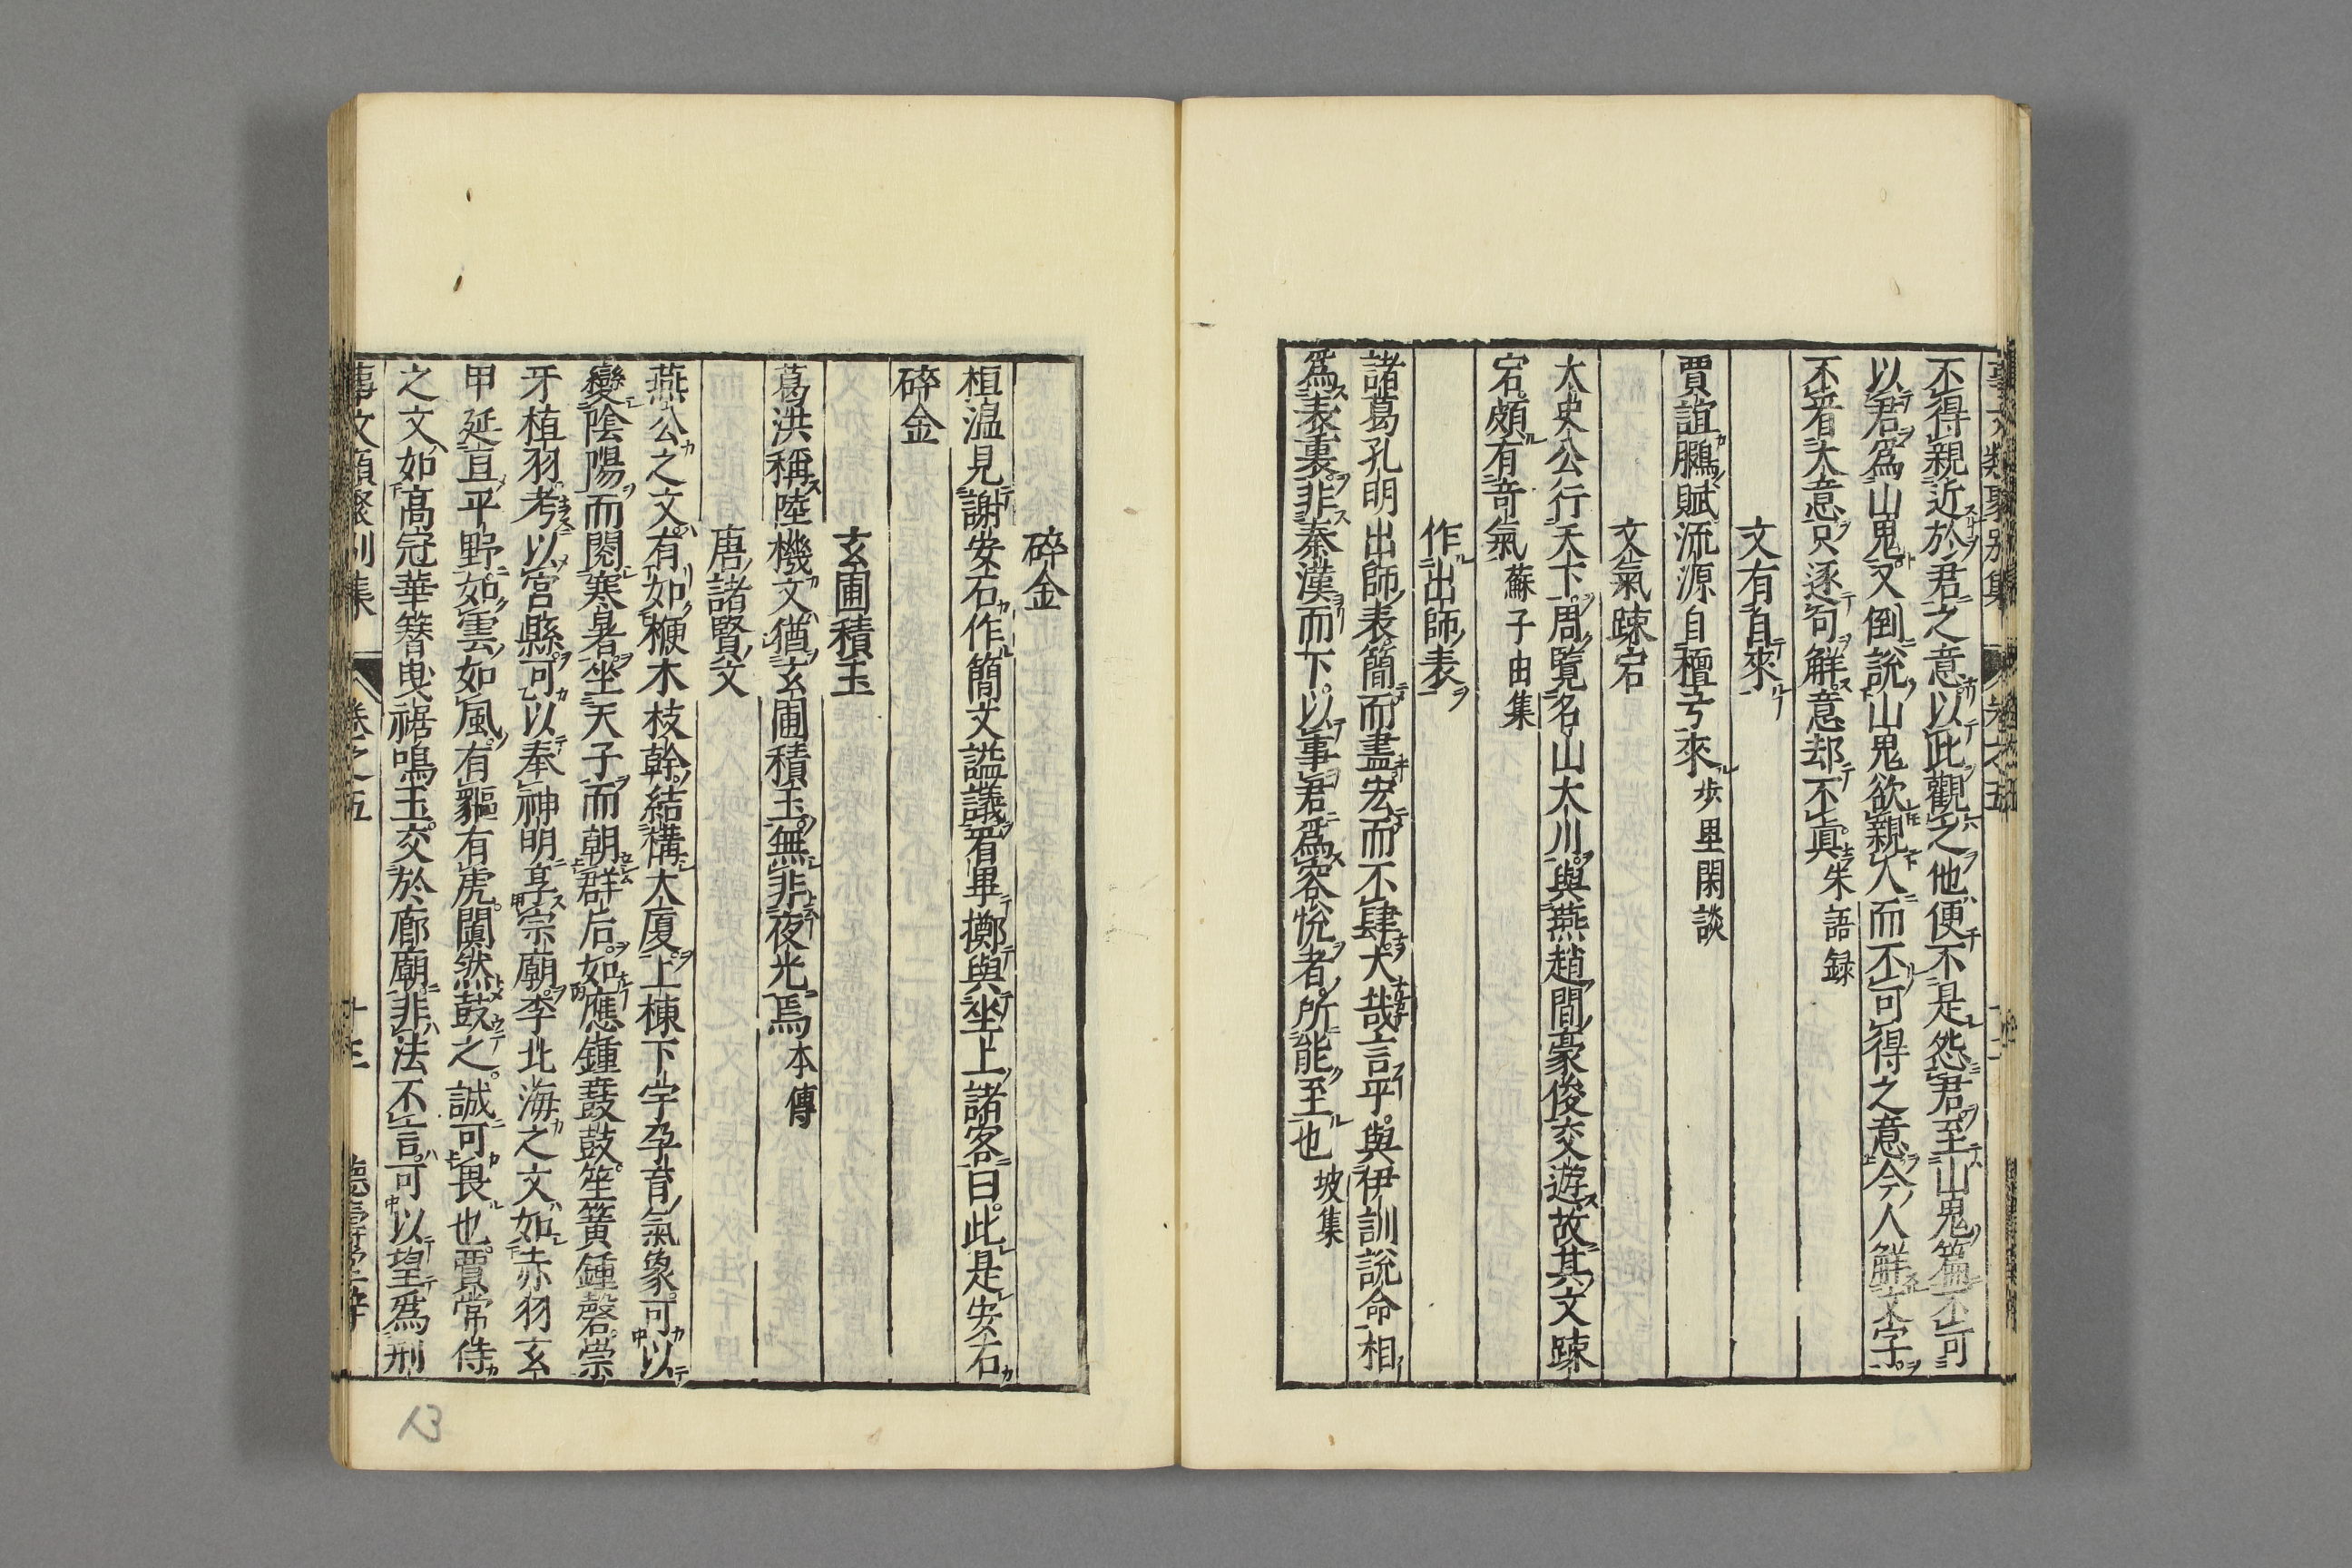 不得親近於君之意以此觀之他便不是怨君至山鬼篇不可
以君爲山鬼又倒說山鬼欲親人而不可得之意今人解文字
不看大意只逐句解意却不眞朱語録
文有自來
賈誼鵩賦流源自檀弓來步里閑談
文氣踈宕
太史公行天下周覽名山大川與燕趙間豪俊交遊故其文踈
宕頗有奇氣蘇子由集
作出師表
諸葛孔明出師表簡而盡宏而不肆大哉言乎與伊訓說命相
爲表裏非秦漢而下以事君爲容悅者所能至也坡集
碎金
桓温見謝安石作簡文謚議看畢擲與坐上諸客曰此是安石
碎金
玄圃積玉
葛洪稱陸機文猶玄圃積玉無非夜光焉本傳
唐諸賢文
燕公之文有如楩木枝幹結構大廈上棟下宇孕育氣象可以
變陰陽而閱寒暑坐天子而朝群后如應鍾鼖鼓笙簧鍾磬崇
牙植羽考以宮縣可以奉神明享宗廟李北海之文如赤羽玄
甲延亘平野如雲如風有貙有虎闐然鼓之誠可畏也賈常侍
之文如高冠華簪曳裾鳴玉交於廊廟非法不言可以望爲刑
事文類聚別集 卷之五 十三 德壽堂梓